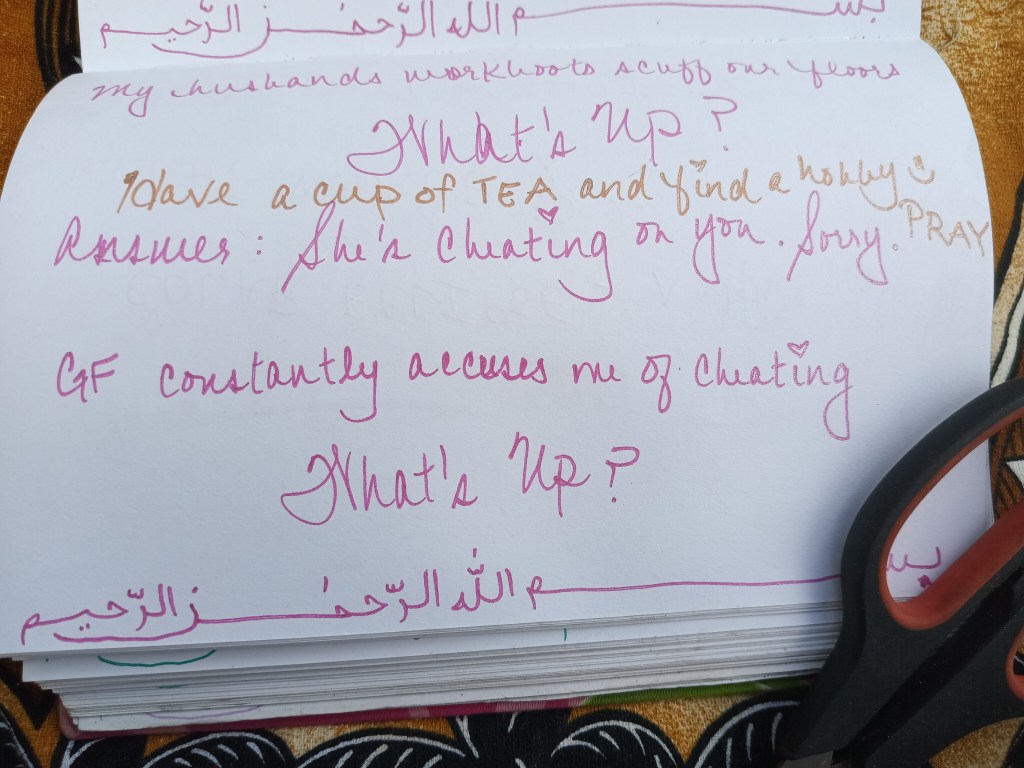 بســـــم الله الرّحمٰـــن الرّحيـــم
My husbands workboots scuff our floors
What's Up?
Have a cup of TEA and find a hobby
PRAY
Answer: She's Cheating on you. Sorry.
GF constantly accuses me of Cheating
What's Up?
بســـــم الله الرّحمٰـــن الرّحيـــم